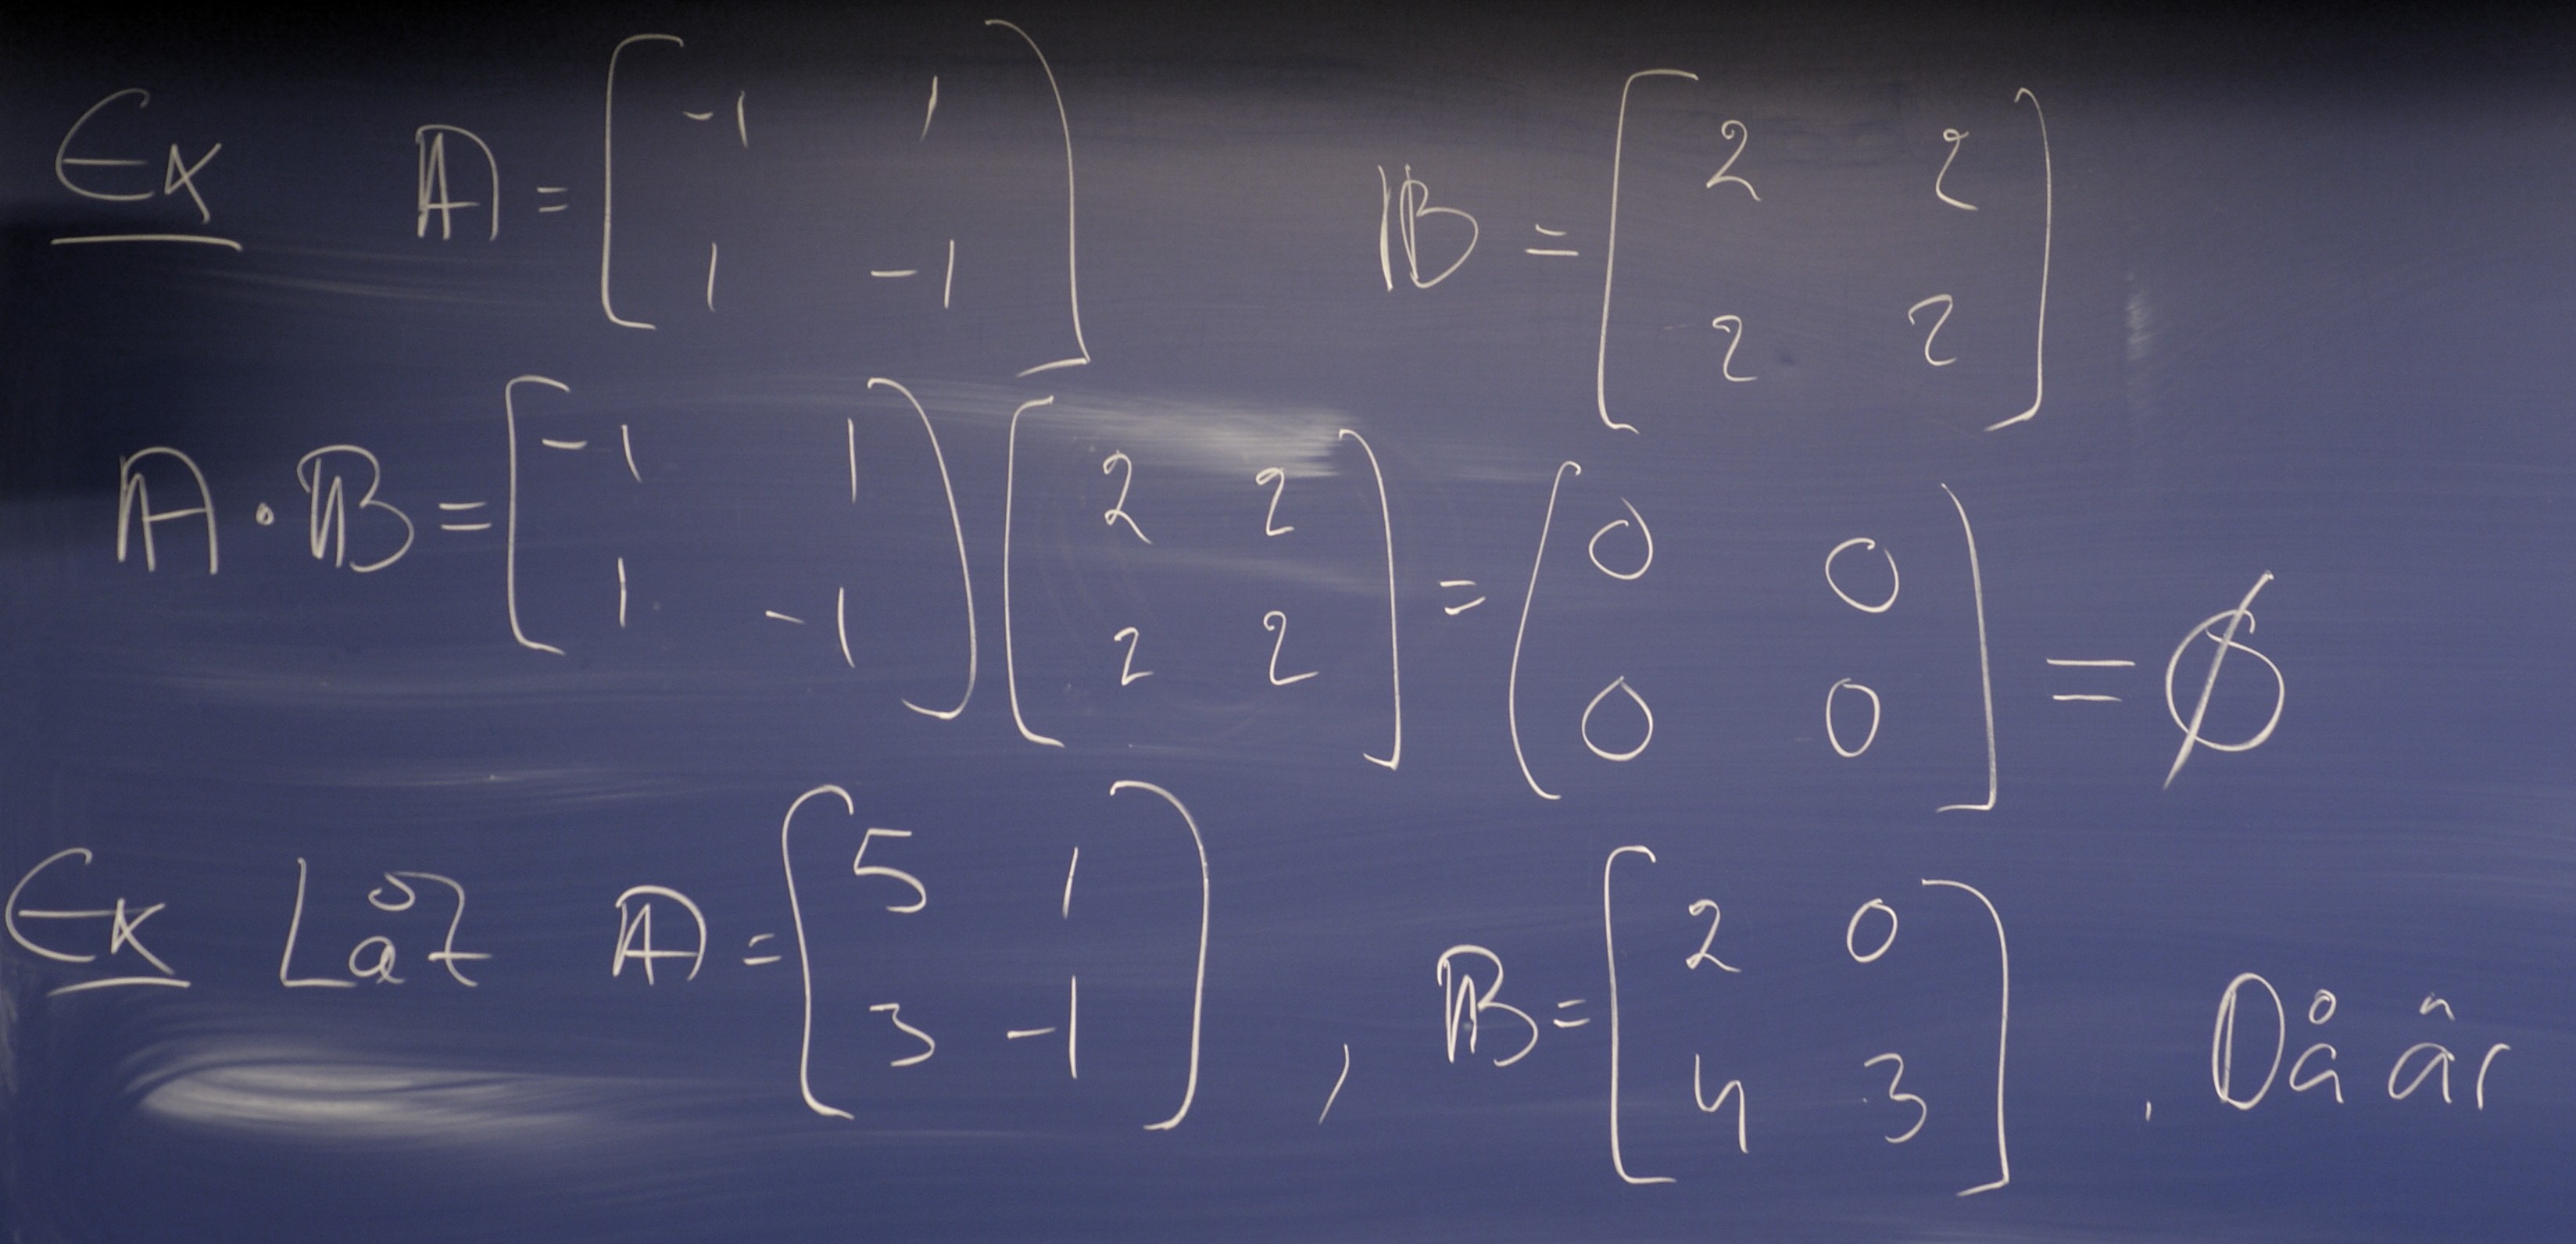 Ex 𝔸 = [-1 1; 1 -1] 𝔹 = [2 2; 2 2]
𝔸 · 𝔹 = [-1 1; 1 -1] [2 2; 2 2] = [0 0; 0 0] = 𝟘
Ex Låt 𝔸 = [5 1; 3 -1], 𝔹 = [2 0; 4 3]. Då är